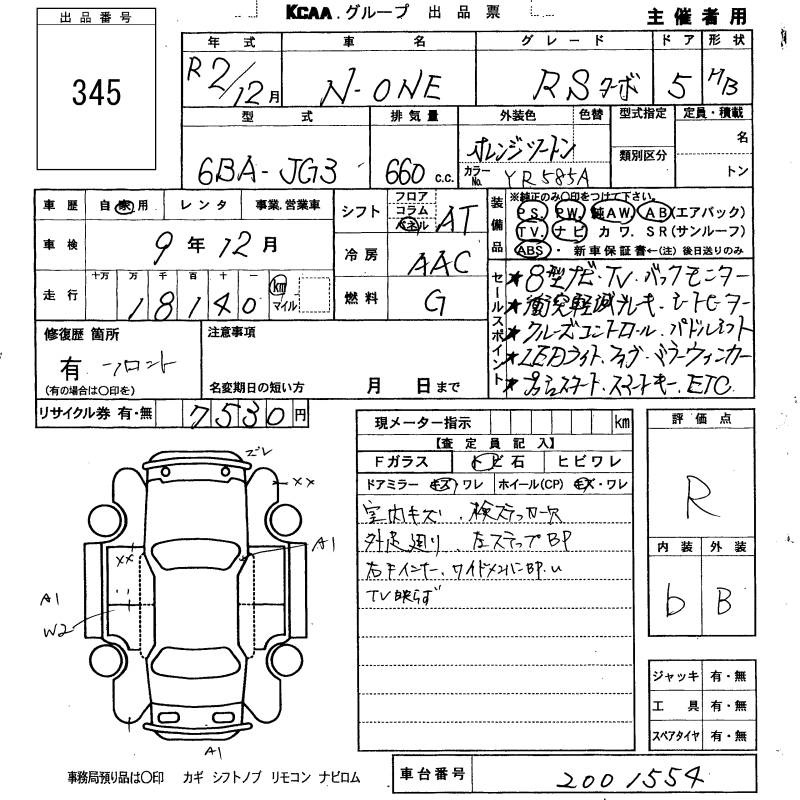 出品番号
345
KCAA.グループ 出品票
主催者用
年式 車名 グレード ドア 形状
R2/12月 N-ONE RSターボ 5 HB
型式 排気量 外装色 色替 型式指定 定員・積載
6BA-JG3 660 c.c. オレンジツートン 類別区分 名
カラーNo. YR585A トン
車歴 自家用 レンタ 事業.営業車
車検 9年12月
走行 十万 万 千 百 十 一
18140 km マイル
シフト フロア コラム パネル AT
冷房 AAC
燃料 G
装備品
※純正のみ〇印をつけて下さい。
PS. PW. 純AW. AB(エアバック)
TV. ナビ カワ. SR(サンルーフ)
ABS ・ 新車保証書←(注)後日送りのみ
セールスポイント
★8型ナビ・TV・バックモニター
★衝突軽減ブレーキ・シートヒーター
★クルーズコントロール・パドルシフト
★LEDライト・フォグ・ミラーウィンカー
★プッシュスタート・スマートキー・ETC
修復歴 箇所
有 フロント
(有の場合は〇印を)
注意事項
名変期日の短い方 月 日まで
リサイクル券 有・無 7530円
現メーター指示 km
【査定員記入】
Fガラス トビ石 ヒビワレ
ドアミラー キズ ワレ ホイール(CP) キズ・ワレ
室内キズ. 検ステッカー欠
外足廻り. 左ステップBP
右Fインナー. ワイドメンバーBP. u
TV映らず
評価点
R
内装 外装
b B
ズレ
××
A1
××
A1
W2
A1
ジャッキ 有・無
工具 有・無
スペアタイヤ 有・無
事務局預り品は〇印 カギ シフトノブ リモコン ナビロム
車台番号 2001554